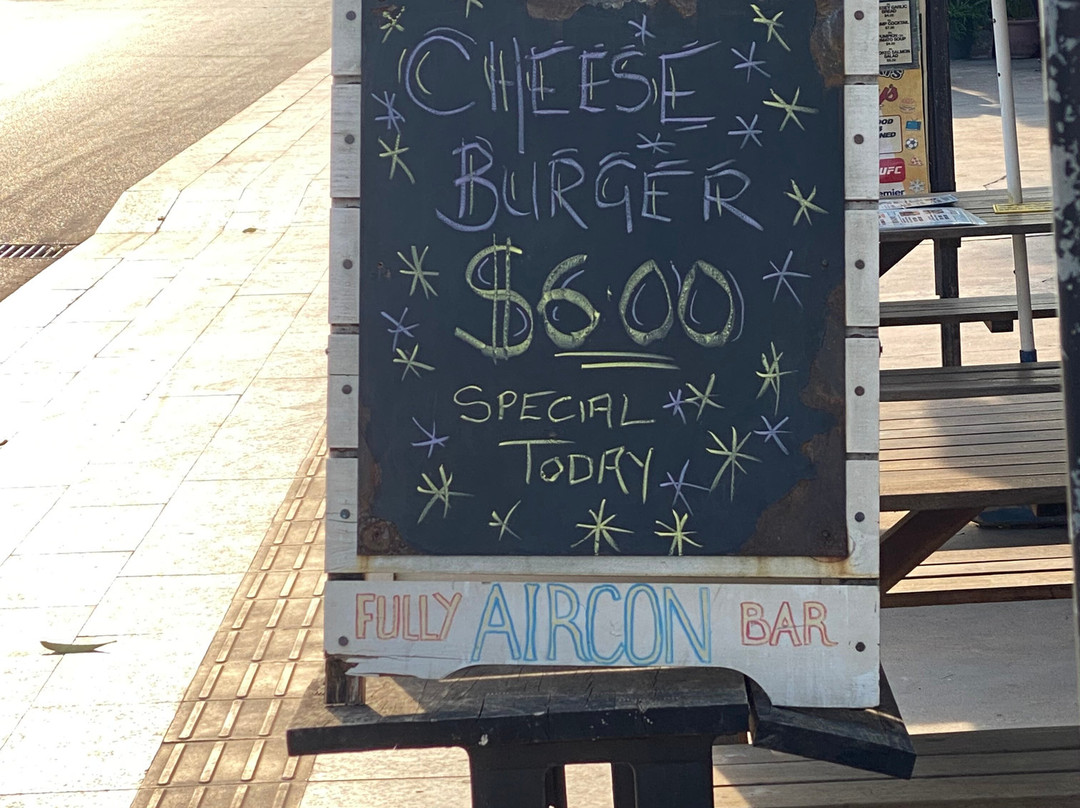 CHEESE
BURGER
$6.00
SPECIAL
TODAY
FULLY AIRCON BAR
UFC